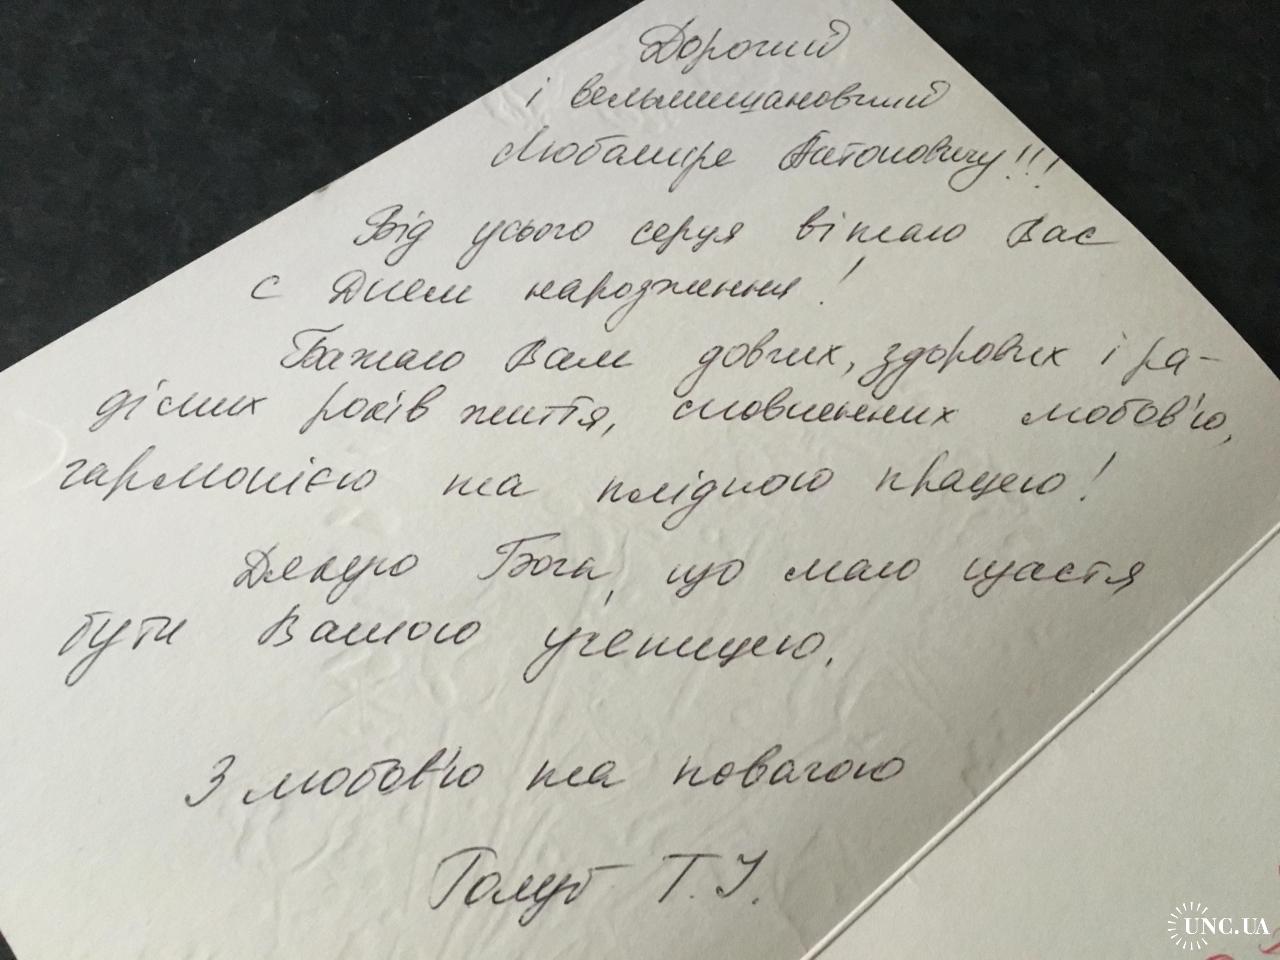 Дорогий
і вельмишановний
Любомире Антоновичу!!!
Від усього серця вітаю Вас
с Днем народження!
Бажаю Вам довгих, здорових і ра-
дісних років життя, сповнених любов'ю,
гармонією та плідною працею!
Дякую Богу, що маю щастя
бути Вашою ученицею.
З любов'ю та повагою
Голуб Т. І.
UNC.UA